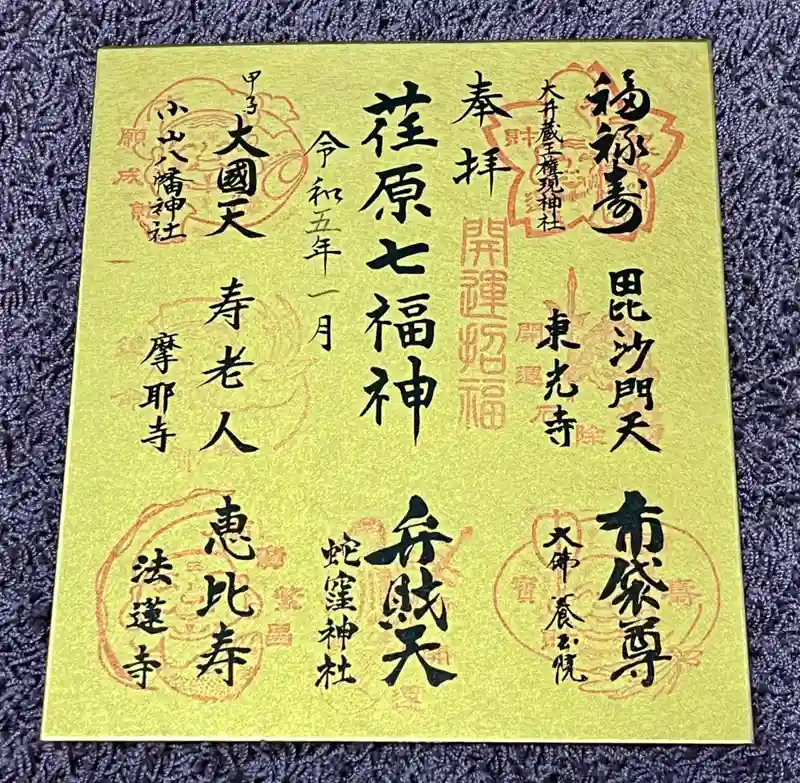 福禄寿
大井蔵王権現神社
財
毘沙門天
東光寺
開運
除
布袋尊
大佛 養玉院
寳
壽
奉拝
開運招福
荏原七福神
令和五年一月
弁財天
蛇窪神社
開運
甲子
大國天
小山八幡神社
願成就
寿老人
摩耶寺
恵比寿
法蓮寺
繁昌